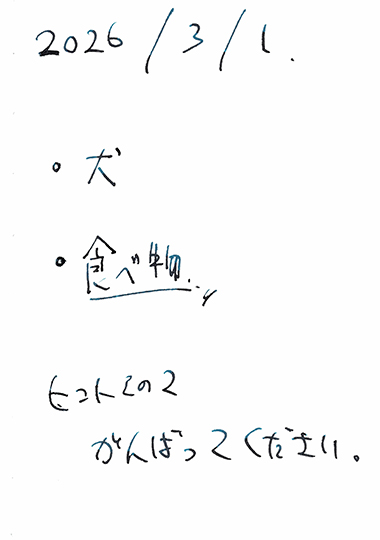 2026/3/1.
・犬
・食べ物...
ヒントその2
がんばってください。